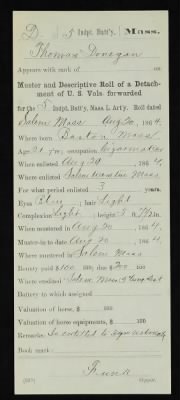 D | 5 Indpt. Batt'y. | Mass.
Thomas Donegan
Appears with rank of
Muster and Descriptive Roll of a Detach-
ment of U. S. Vols. forwarded
for the 5 Indpt. Bat'y, Mass. L. Art'y. Roll dated
Salem Mass Aug 20, 1864.
Where born Boston Mass
Age 21 y'rs; occupation
When enlisted Aug 20, 1864.
Where enlisted Salem Mass
For what period enlisted 3 years.
Eyes Blue; hair Light
Complexion Light; height 5 ft. in.
When mustered in Aug 20, 1864.
Muster-in to date Aug 20, 1864.
Where mustered in Salem Mass
Bounty paid $ 100; due $ 200 100
Where credited Salem Mass
Battery to which assigned
Valuation of horse, $ 100
Valuation of horse equipments, $ 100
Remarks: Is entitled to
Book mark:
Copyist.